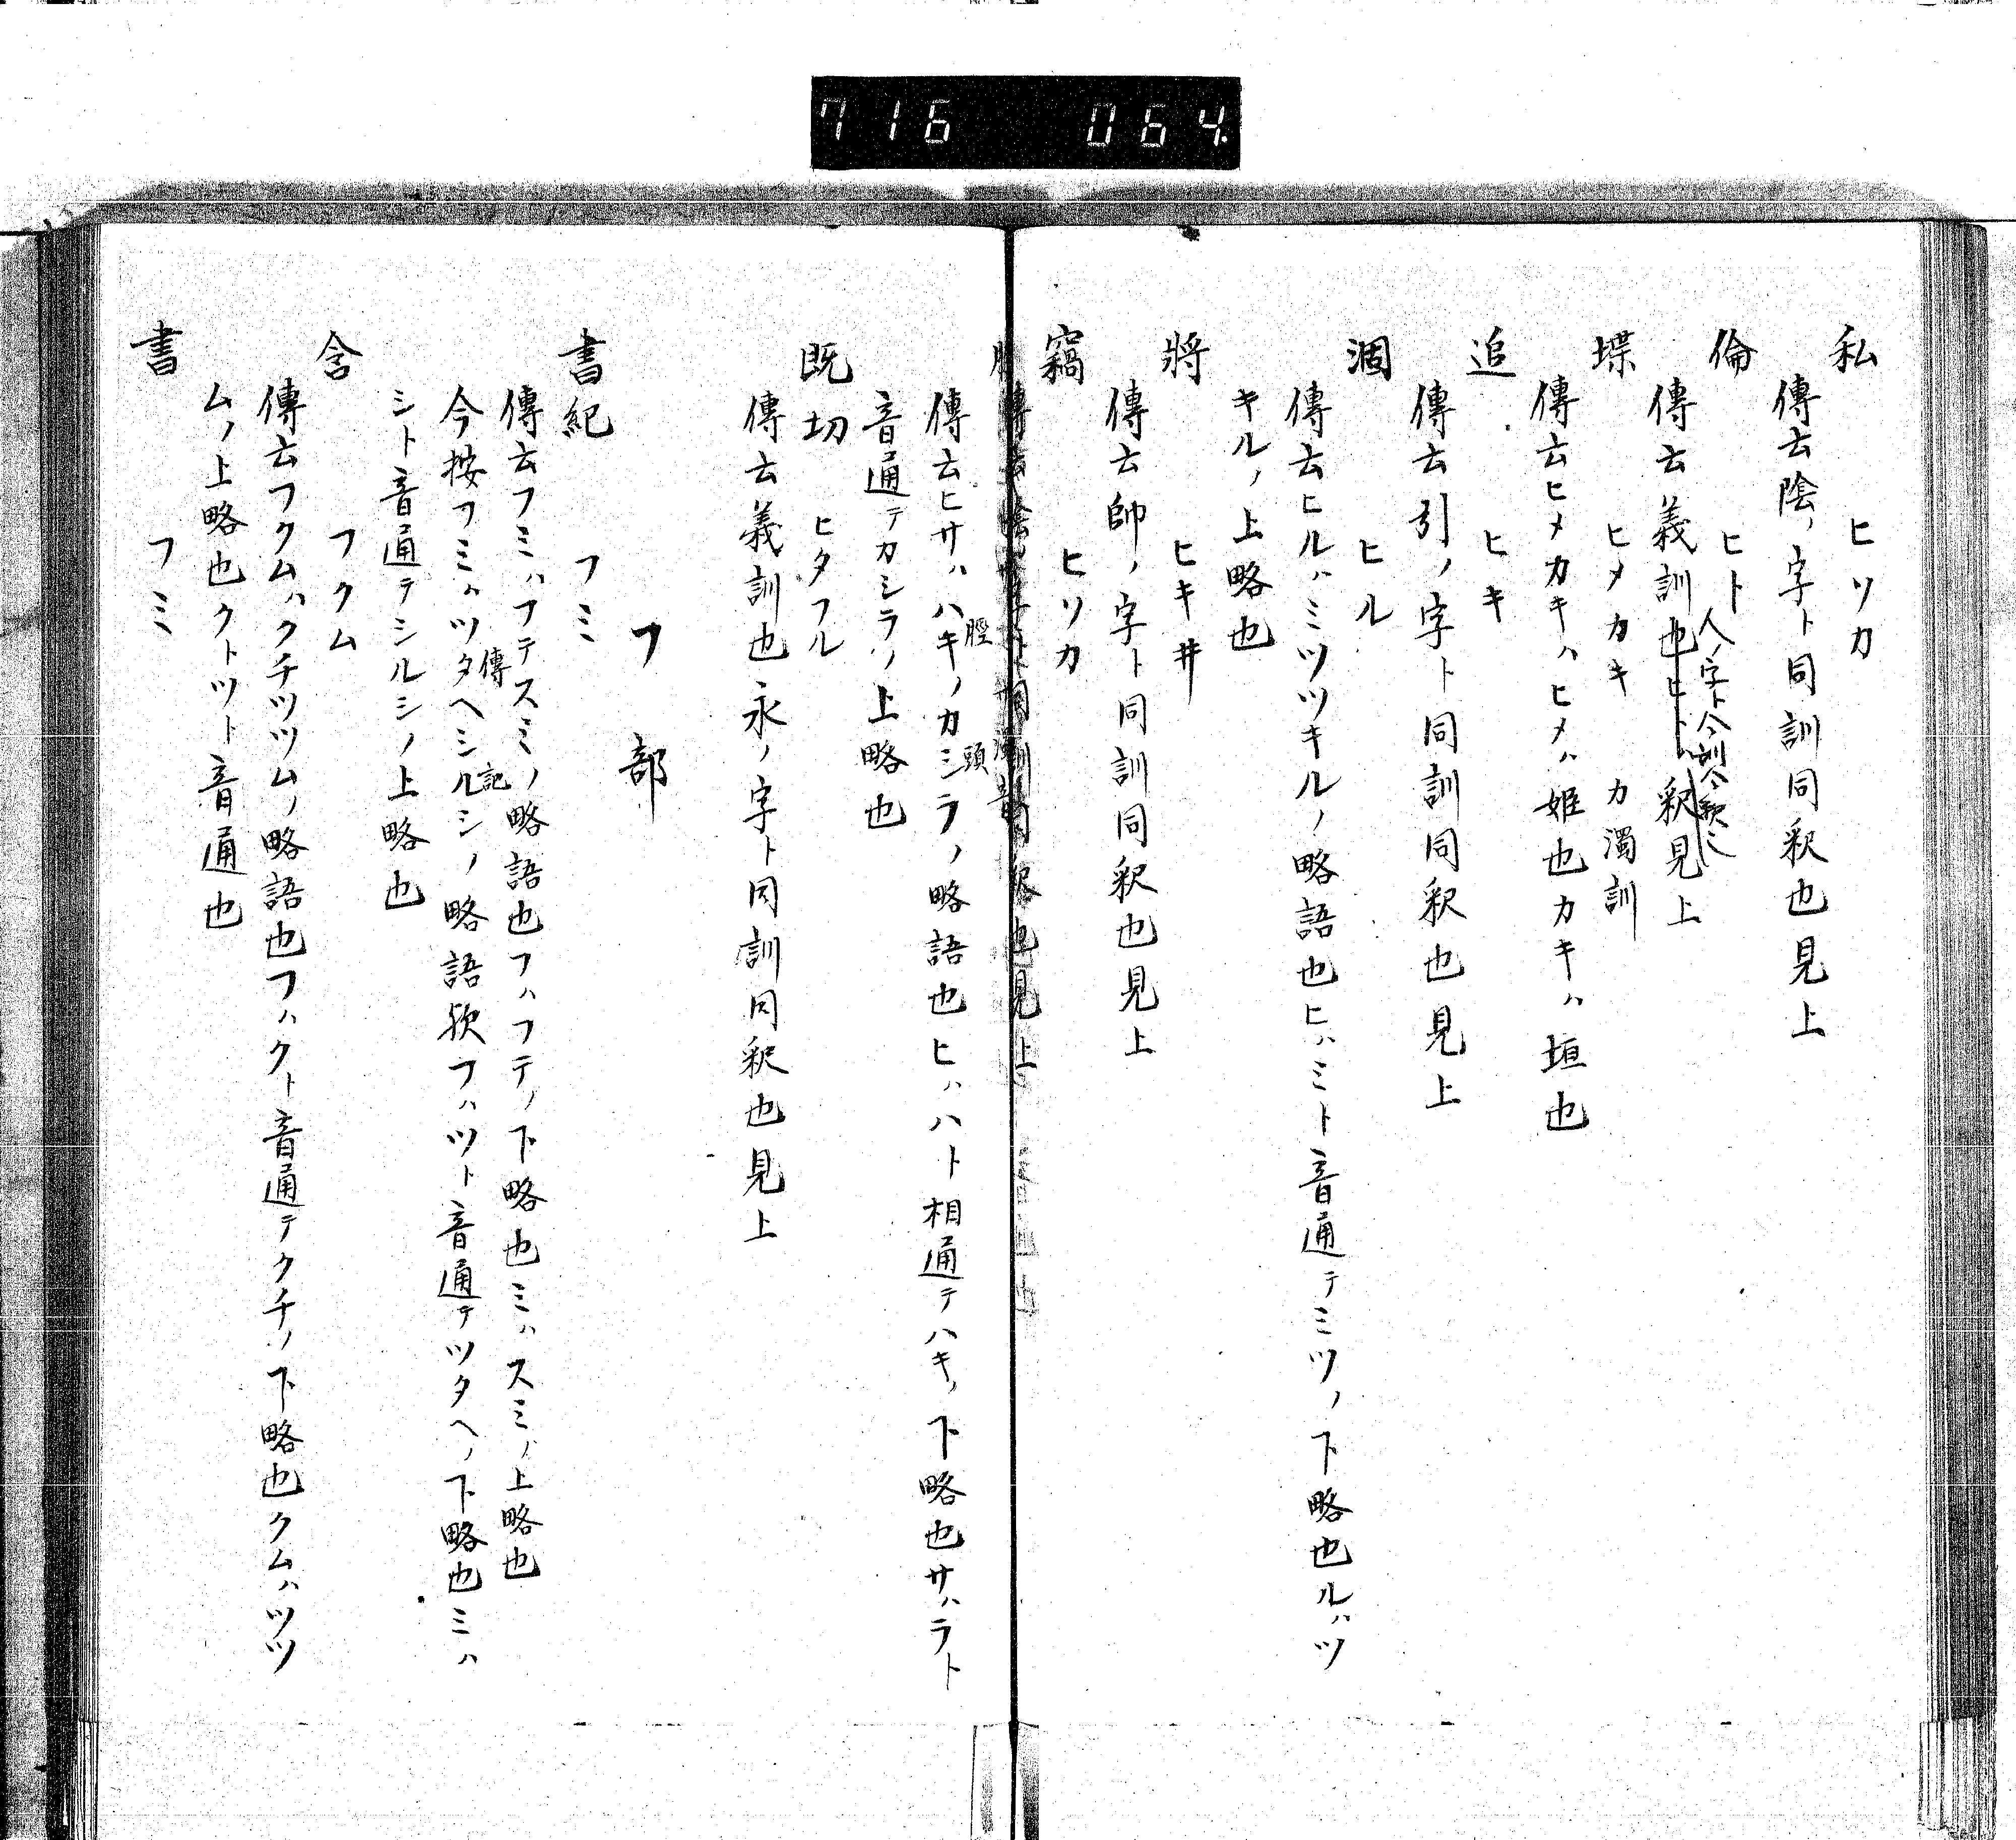 716 064
私 ヒソカ
傳云陰ノ字ト同訓同釈也見上
倫 ヒト
傳云義訓也ヒトハ釈見上
堞 ヒメカキ カ濁訓
傳云ヒメカキハヒメハ姫也カキハ垣也
追 ヒキ
傳云引ノ字ト同訓同釈也見上
涸 ヒル
傳云ヒルハミツツキルノ略語也ヒハミト音通テミツノ下略也ルハツ
キルノ上略也
將 ヒキ井
傳云帥ノ字ト同訓同釈也見上
竊 ヒソカ
傳云陰ノ字ト同訓同釈也見上
傳云ヒサハハキノカシラノ略語也ヒハハト相通テハキノ下略也サハラト
脛 頭
音通テカシラノ上略也
既切 ヒタフル
傳云義訓也永ノ字ト同訓同釈也見上
フ部
書紀 フミ
傳云フミハフテスミノ略語也フハフテノ下略也ミハスミノ上略也
今按フミハツタヘシルシノ略語歟フハツト音通テツタヘノ下略也ミハ
傳 記
シト音通テシルシノ上略也
含 フクム
傳云フクムハクチツツムノ略語也フハクト音通テクチノ下略也クムハツツ
ムノ上略也クトツト音通也
書 フミ